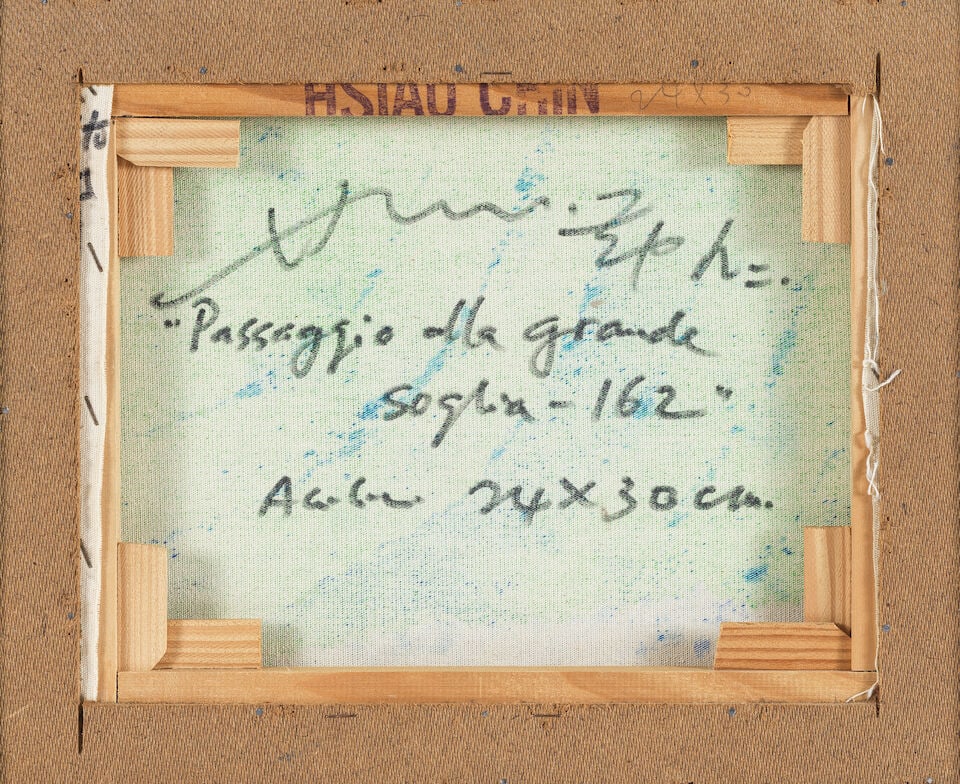 HSIAO CHIN 24X30
"Passaggio alla grande
soglia-162"
24X30cm.